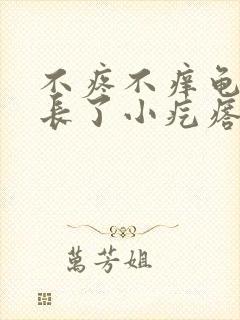 不疼不痒龟
长了小疙瘩
萬芳姐